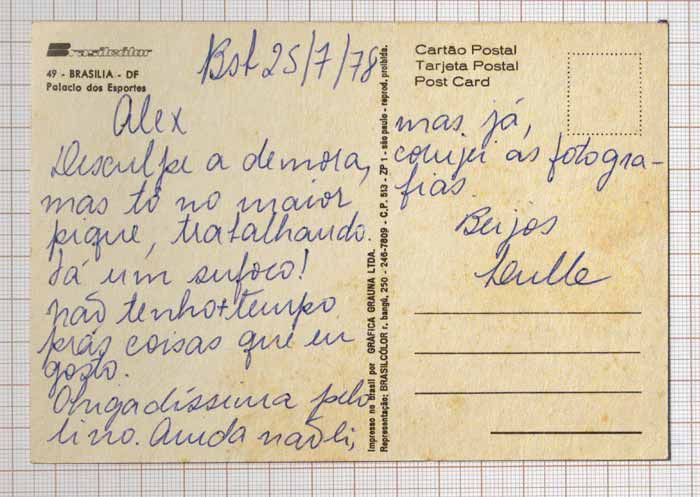 Brasilcolor
49 - BRASILIA - DF
Palacio dos Esportes
Bsb 25/7/78
Alex
Desculpe a demora,
mas tô no maior
pique, trabalhando.
Tá um sufoco!
não tenho + tempo
pras coisas que eu
gosto.
Obrigadíssima pelo
livro. Ainda não li,
Impresso no Brasil por GRÁFICA GRAUNA LTDA.
Representação: BRASILCÓLOR r. bangú, 250 - 246-7809 - C.P. 513 - ZP 1 - são paulo - reprod. proibida.
Cartão Postal
Tarjeta Postal
Post Card
mas já,
corujei as fotogra-
fias.
Beijos